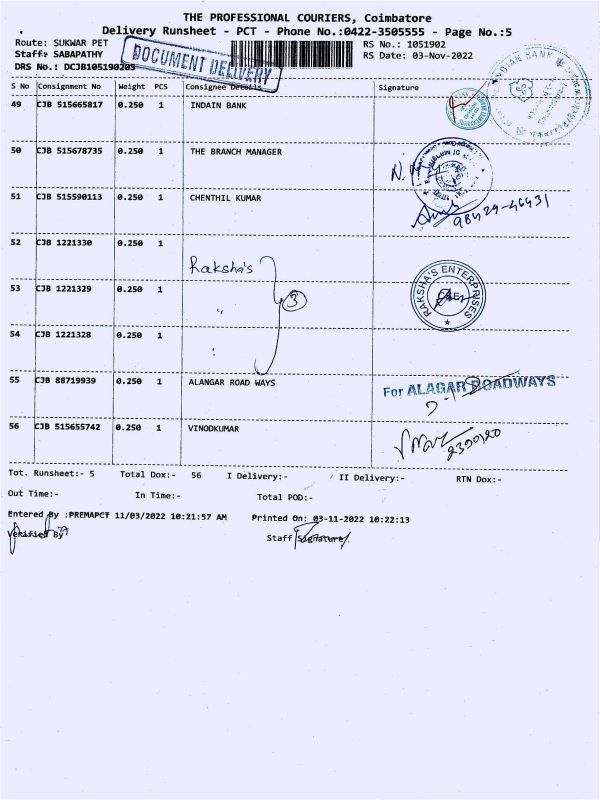 THE PROFESSIONAL COURIERS, Coimbatore
Delivery Runsheet - PCT - Phone No.:0422-3505555 - Page No.:5
Route: SUKWAR PET RS No.: 1051902
Staff: SABAPATHY RS Date: 03-Nov-2022
DRS No.: DCJB105190205
DOCUMENT DELIVERY
S No Consignment No Weight PCS Consignee Details Signature
49 CJB 515665817 0.250 1 INDAIN BANK
INDIAN BANK
50 CJB 515678735 0.250 1 THE BRANCH MANAGER
51 CJB 515590113 0.250 1 CHENTHIL KUMAR
98429-46431
52 CJB 1221330 0.250 1
Raksha's
53 CJB 1221329 0.250 1 " 3
RAKSHA'S ENTERPRISES
CBE
54 CJB 1221328 0.250 1
55 CJB 88719939 0.250 1 ALANGAR ROAD WAYS
For ALAGAR ROADWAYS
56 CJB 515655742 0.250 1 VINODKUMAR
Tot. Runsheet:- 5 Total Dox:- 56 I Delivery:- II Delivery:- RTN Dox:-
Out Time:- In Time:- Total POD:-
Entered By :PREMAPCT 11/03/2022 10:21:57 AM Printed On: 03-11-2022 10:22:13
Verified By Staff Signature